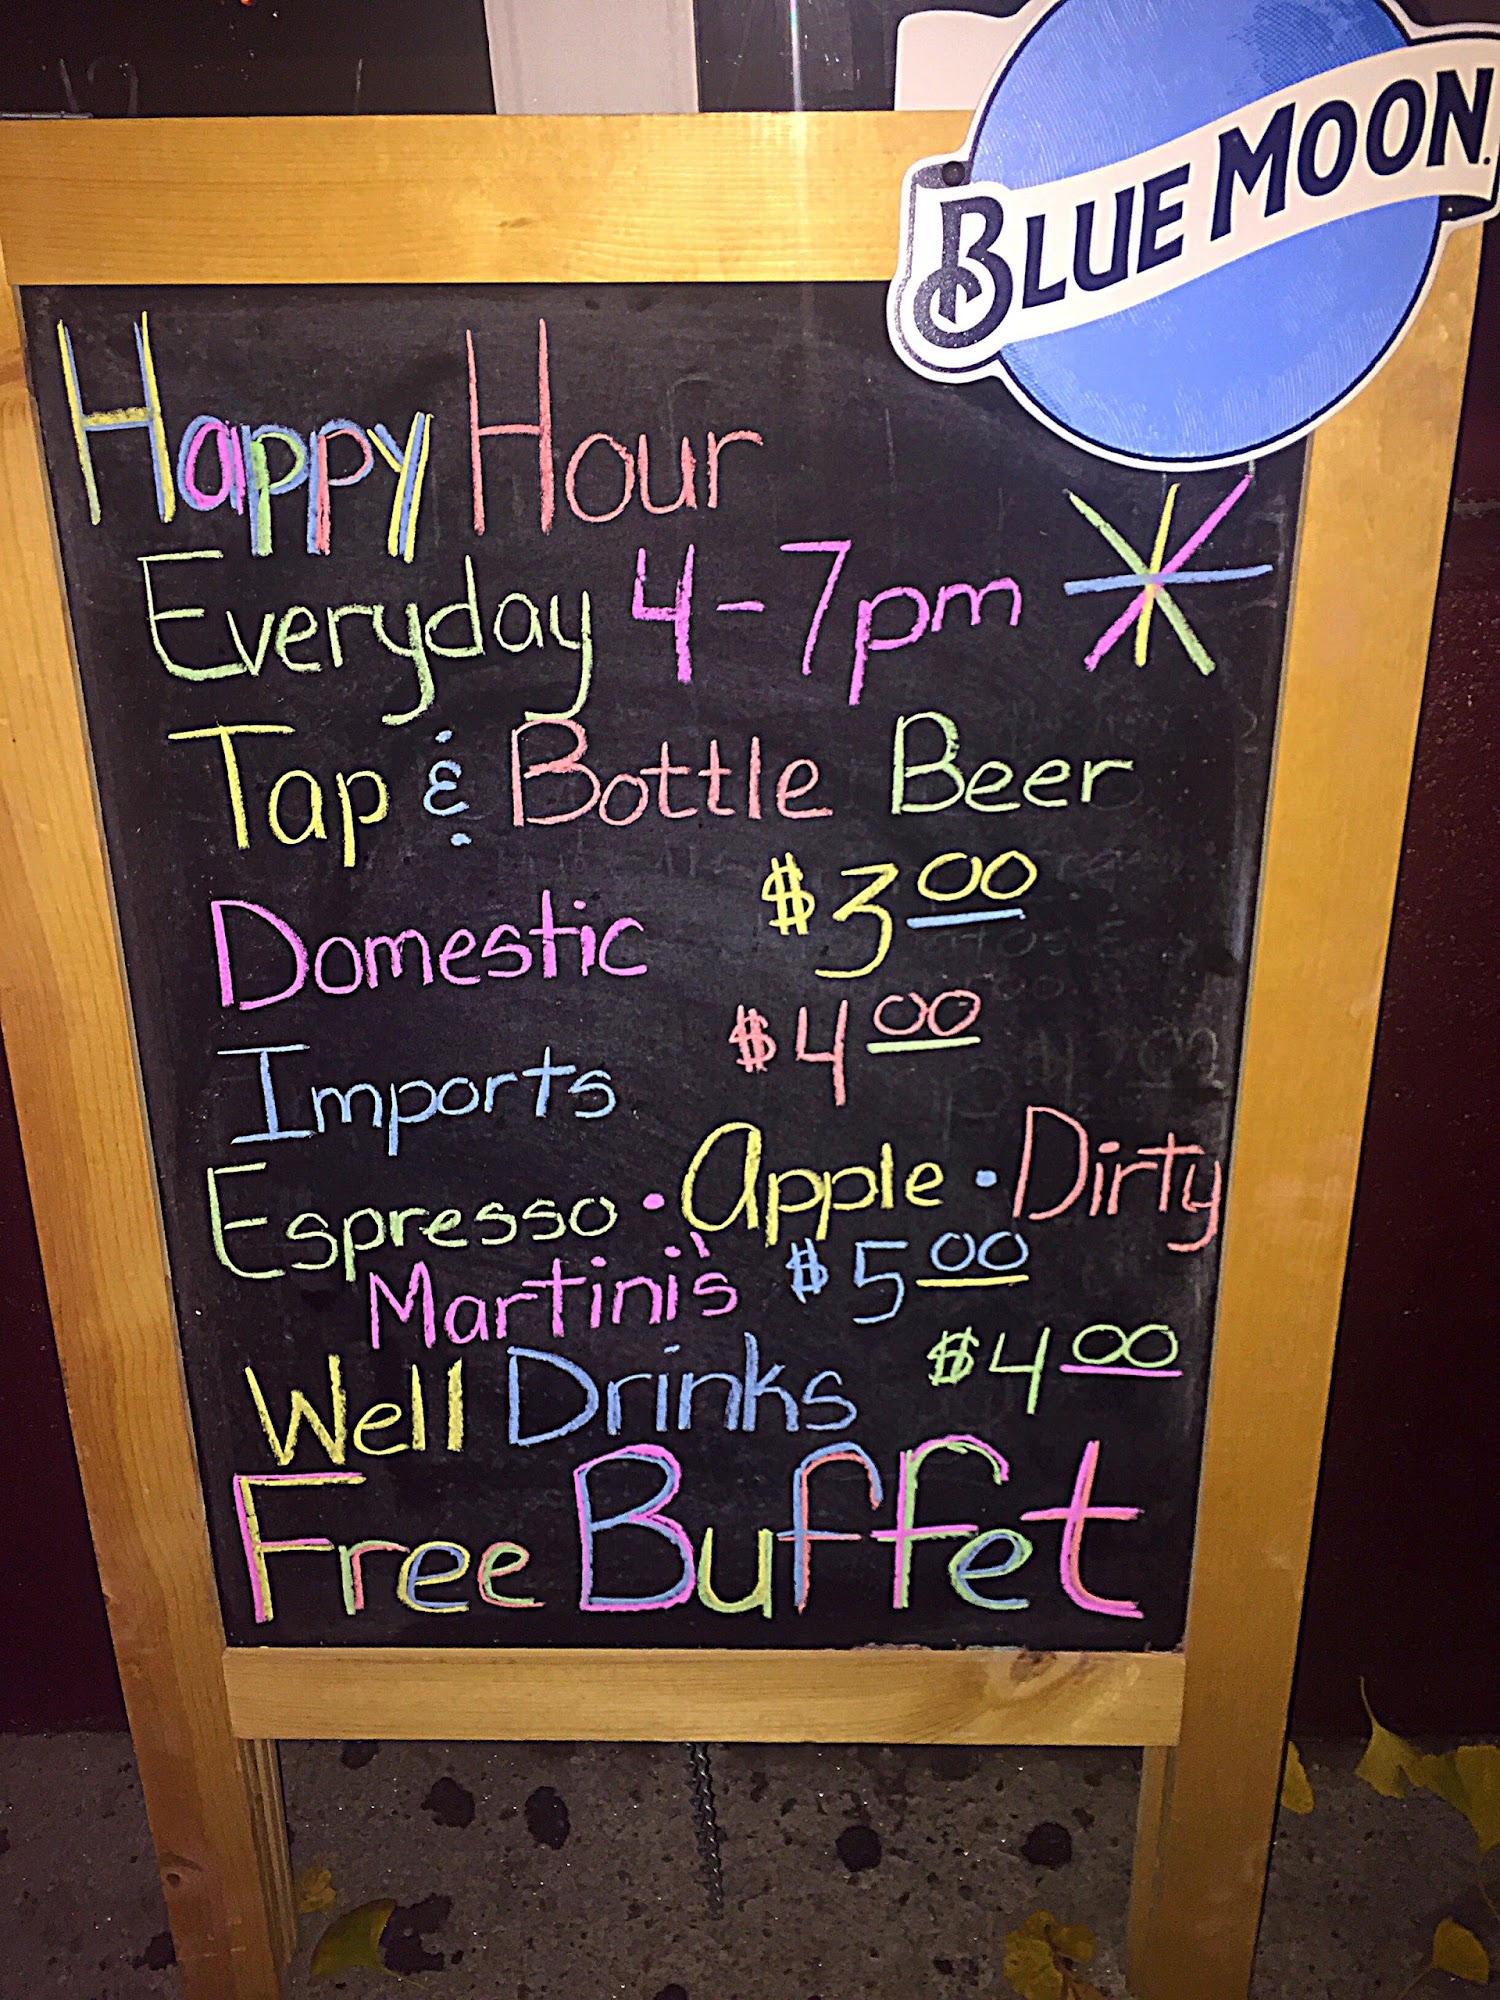 BLUE MOON.
Happy Hour
Everyday 4-7pm
Tap & Bottle Beer
Domestic $3.00
Imports $4.00
Espresso • Apple • Dirty
Martini's $5.00
Well Drinks $4.00
Free Buffet